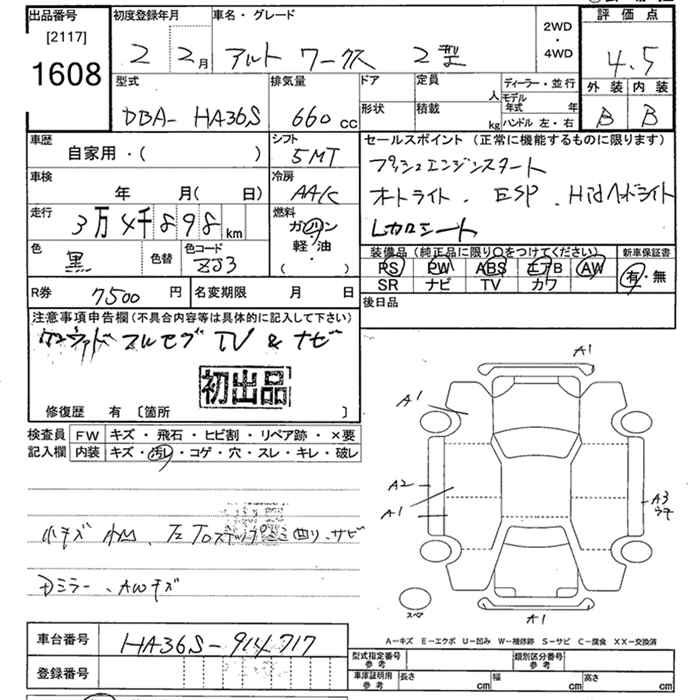 出品番号
[2117]
1608
初度登録年月
2 2月
車名・グレード
アルト ワークス 2型
2WD
・
4WD
評 価 点
4.5
外装 内装
B B
型式
DBA- HA36S
排気量
660 cc
ドア
形状
定員
人
積載
kg
ディーラー・並行
モデル年式 年
ハンドル 左・右
車歴
自家用・( )
シフト
5MT
車検
年 月( 日)
冷房
AA/C
走行
3万4千898km
燃料
ガソリン
軽・油
( )
色
黒
色替
色コード
ZJ3
セールスポイント(正常に機能するものに限ります)
プッシュエンジンスタート
オートライト . ESP . Hidヘッドライト
レカロシート
装備品(純正品に限り○をつけてください)
PS PW ABS エアB AW
SR ナビ TV カワ
新車保証書
有・無
後日品
R券 7500円
名変期限 月 日
注意事項申告欄(不具合内容等は具体的に記入して下さい)
ケンウッド フルセグ TV & ナビ
初出品
修復歴 有〔箇所 〕
検査員
記入欄
FW キズ・飛石・ヒビ割・リペア跡・×要
内装 キズ・汚レ・コゲ・穴・スレ・キレ・破レ
小キズ 凹 、左 ステップ 曲り、サビ
Dミラー、AWキズ
A1
A1
A2
A1
A3
A1
スペア
A-キズ E-エクボ U-凹み W-補修跡 S-サビ C-腐食 XX-交換済
車台番号
HA36S-914717
登録番号
型式指定番号
参考
類別区分番号
参考
車庫証明用
参考
長さ cm 幅 cm 高さ cm